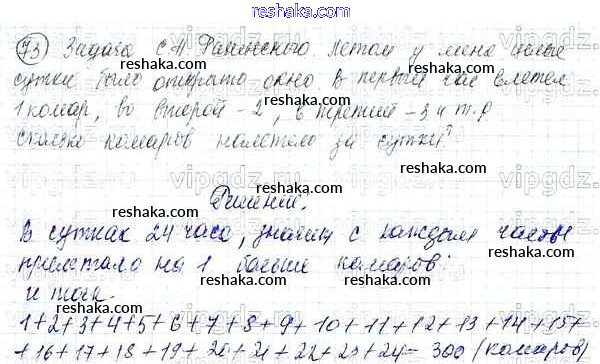 reshaka.com
73 Задача С.А. Рачинского. Летом у меня целые
сутки было открыто окно. В первый час влетел
1 комар, во второй - 2, в третий - 3 и т.д
Сколько комаров налетело за сутки?
Решение.
В сутках 24 часа, значит с каждым часом
прилетало на 1 больше комаров.
Итого:
1+2+3+4+5+6+7+8+9+10+11+12+13+14+15+
+16+17+18+19+20+21+22+23+24=300 (комаров)